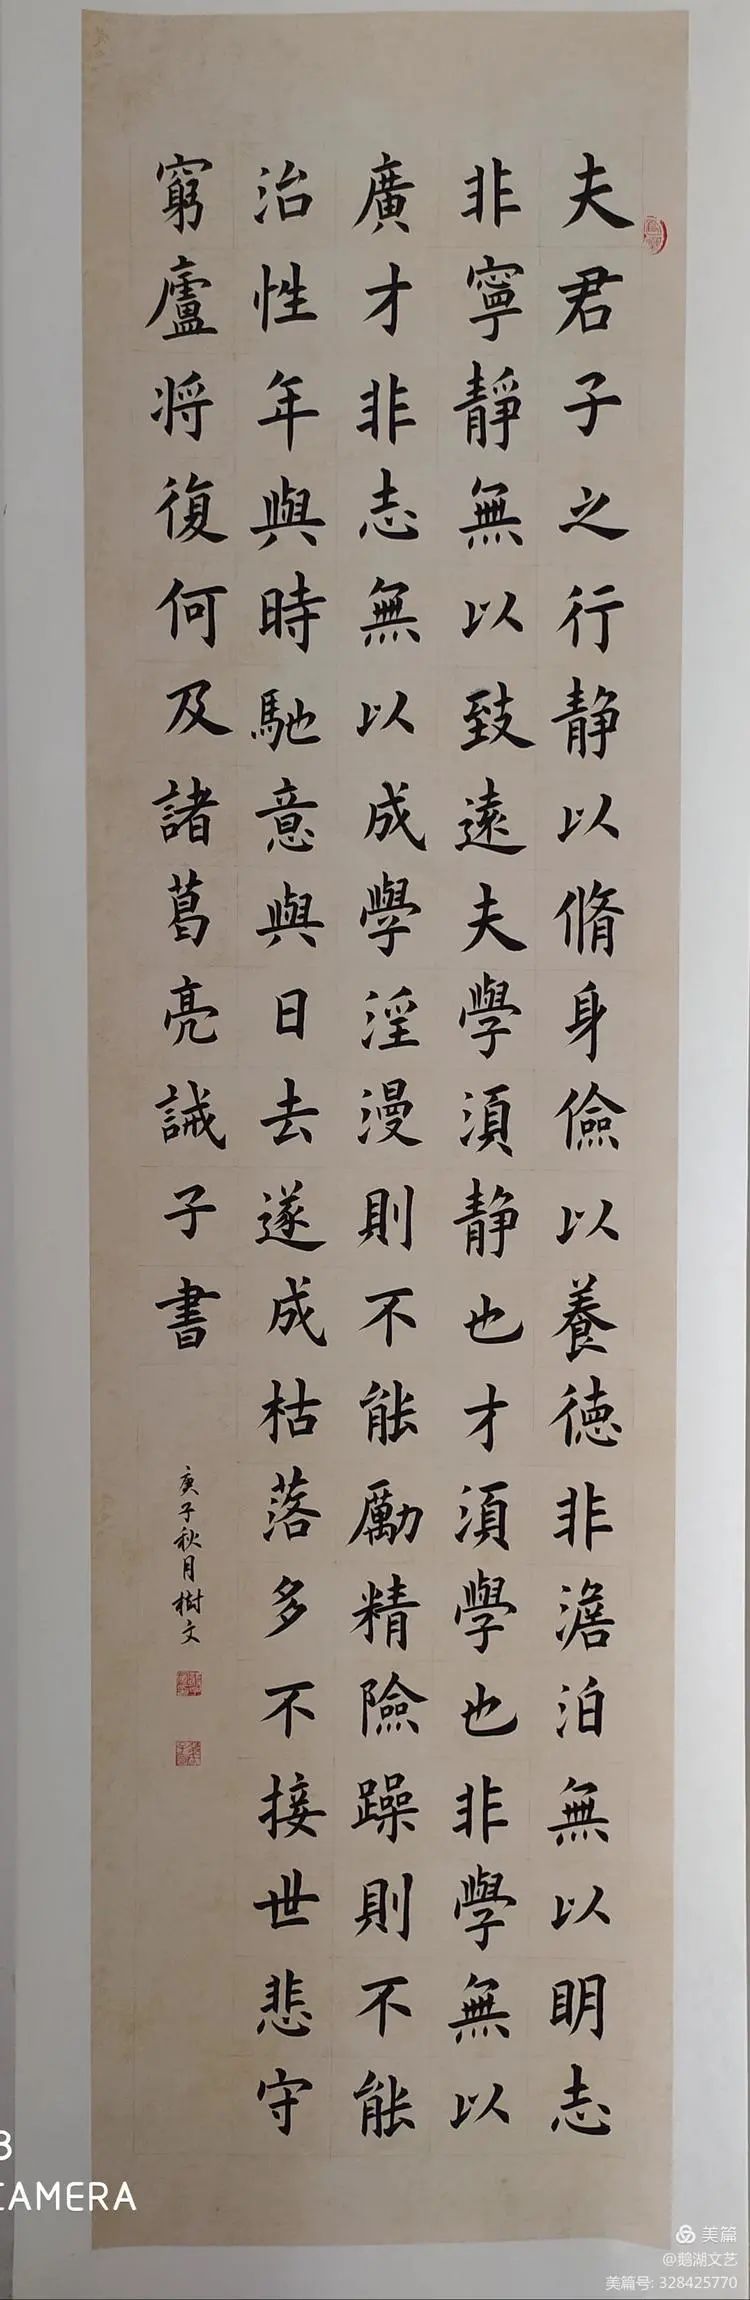 夫君子之行静以脩身儉以養德非澹泊無以明志
非寧靜無以致遠夫學須静也才須學也非學無以
廣才非志無以成學淫漫則不能勵精險躁則不能
治性年與時馳意與日去遂成枯落多不接世悲守
窮廬将復何及諸葛亮誡子書
庚子秋月樹文
CAMERA
美篇
@鹅湖文艺
美篇号: 328425770